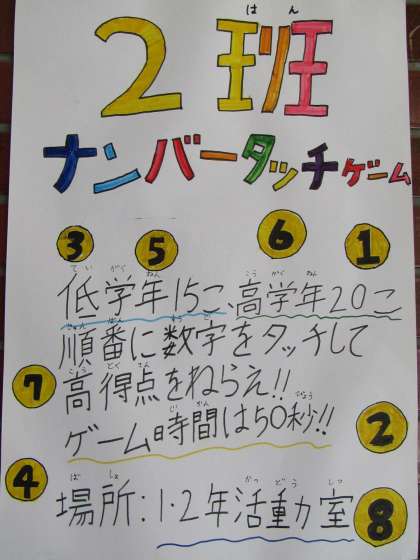 はん
2班
ナンバータッチゲーム
3 5 6 1
てい がく ねん こう がく ねん
低学年15こ、高学年20こ
じゅん ばん すう じ
順番に数字をタッチして
こう とく てん
7 高得点をねらえ!!
じ かん びょう
ゲーム時間は50秒!! 2
ば しょ かつ どう しつ
4 場所:1・2年活動室 8